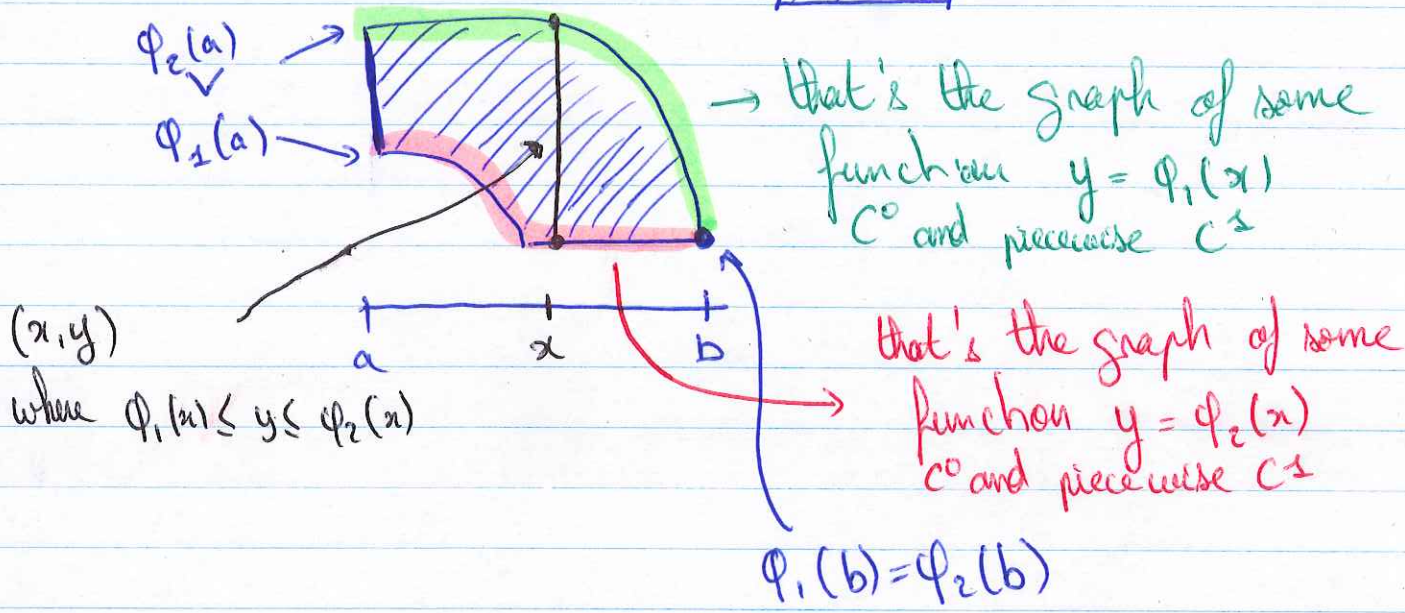 φ₂(a)
∨
φ₁(a)
→ that's the graph of some
function y = φ₁(x)
C⁰ and piecewise C¹
(x,y)
where φ₁(x) ≤ y ≤ φ₂(x)
a x b
that's the graph of some
function y = φ₂(x)
C⁰ and piecewise C¹
φ₁(b) = φ₂(b)